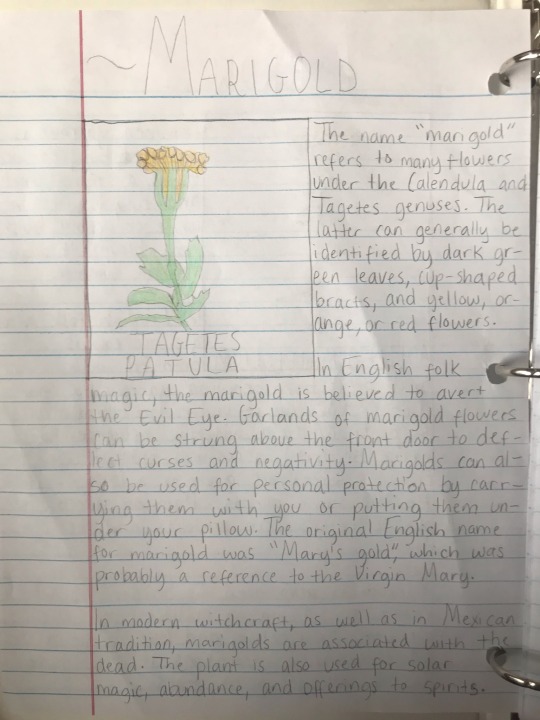 ~MARIGOLD
TAGETES
PATULA
The name "marigold"
refers to many flowers
under the Calendula and
Tagetes genuses. The
latter can generally be
identified by dark gr-
een leaves, cup-shaped
bracts, and yellow, or-
ange, or red flowers.
In English folk
magic, the marigold is believed to avert
the Evil Eye. Garlands of marigold flowers
can be strung above the front door to def-
lect curses and negativity. Marigolds can al-
so be used for personal protection by carr-
ying them with you or putting them un-
der your pillow. The original English name
for marigold was "Mary's gold", which was
probably a reference to the Virgin Mary.
In modern witchcraft, as well as in Mexican
tradition, marigolds are associated with the
dead. The plant is also used for solar
magic, abundance, and offerings to spirits.